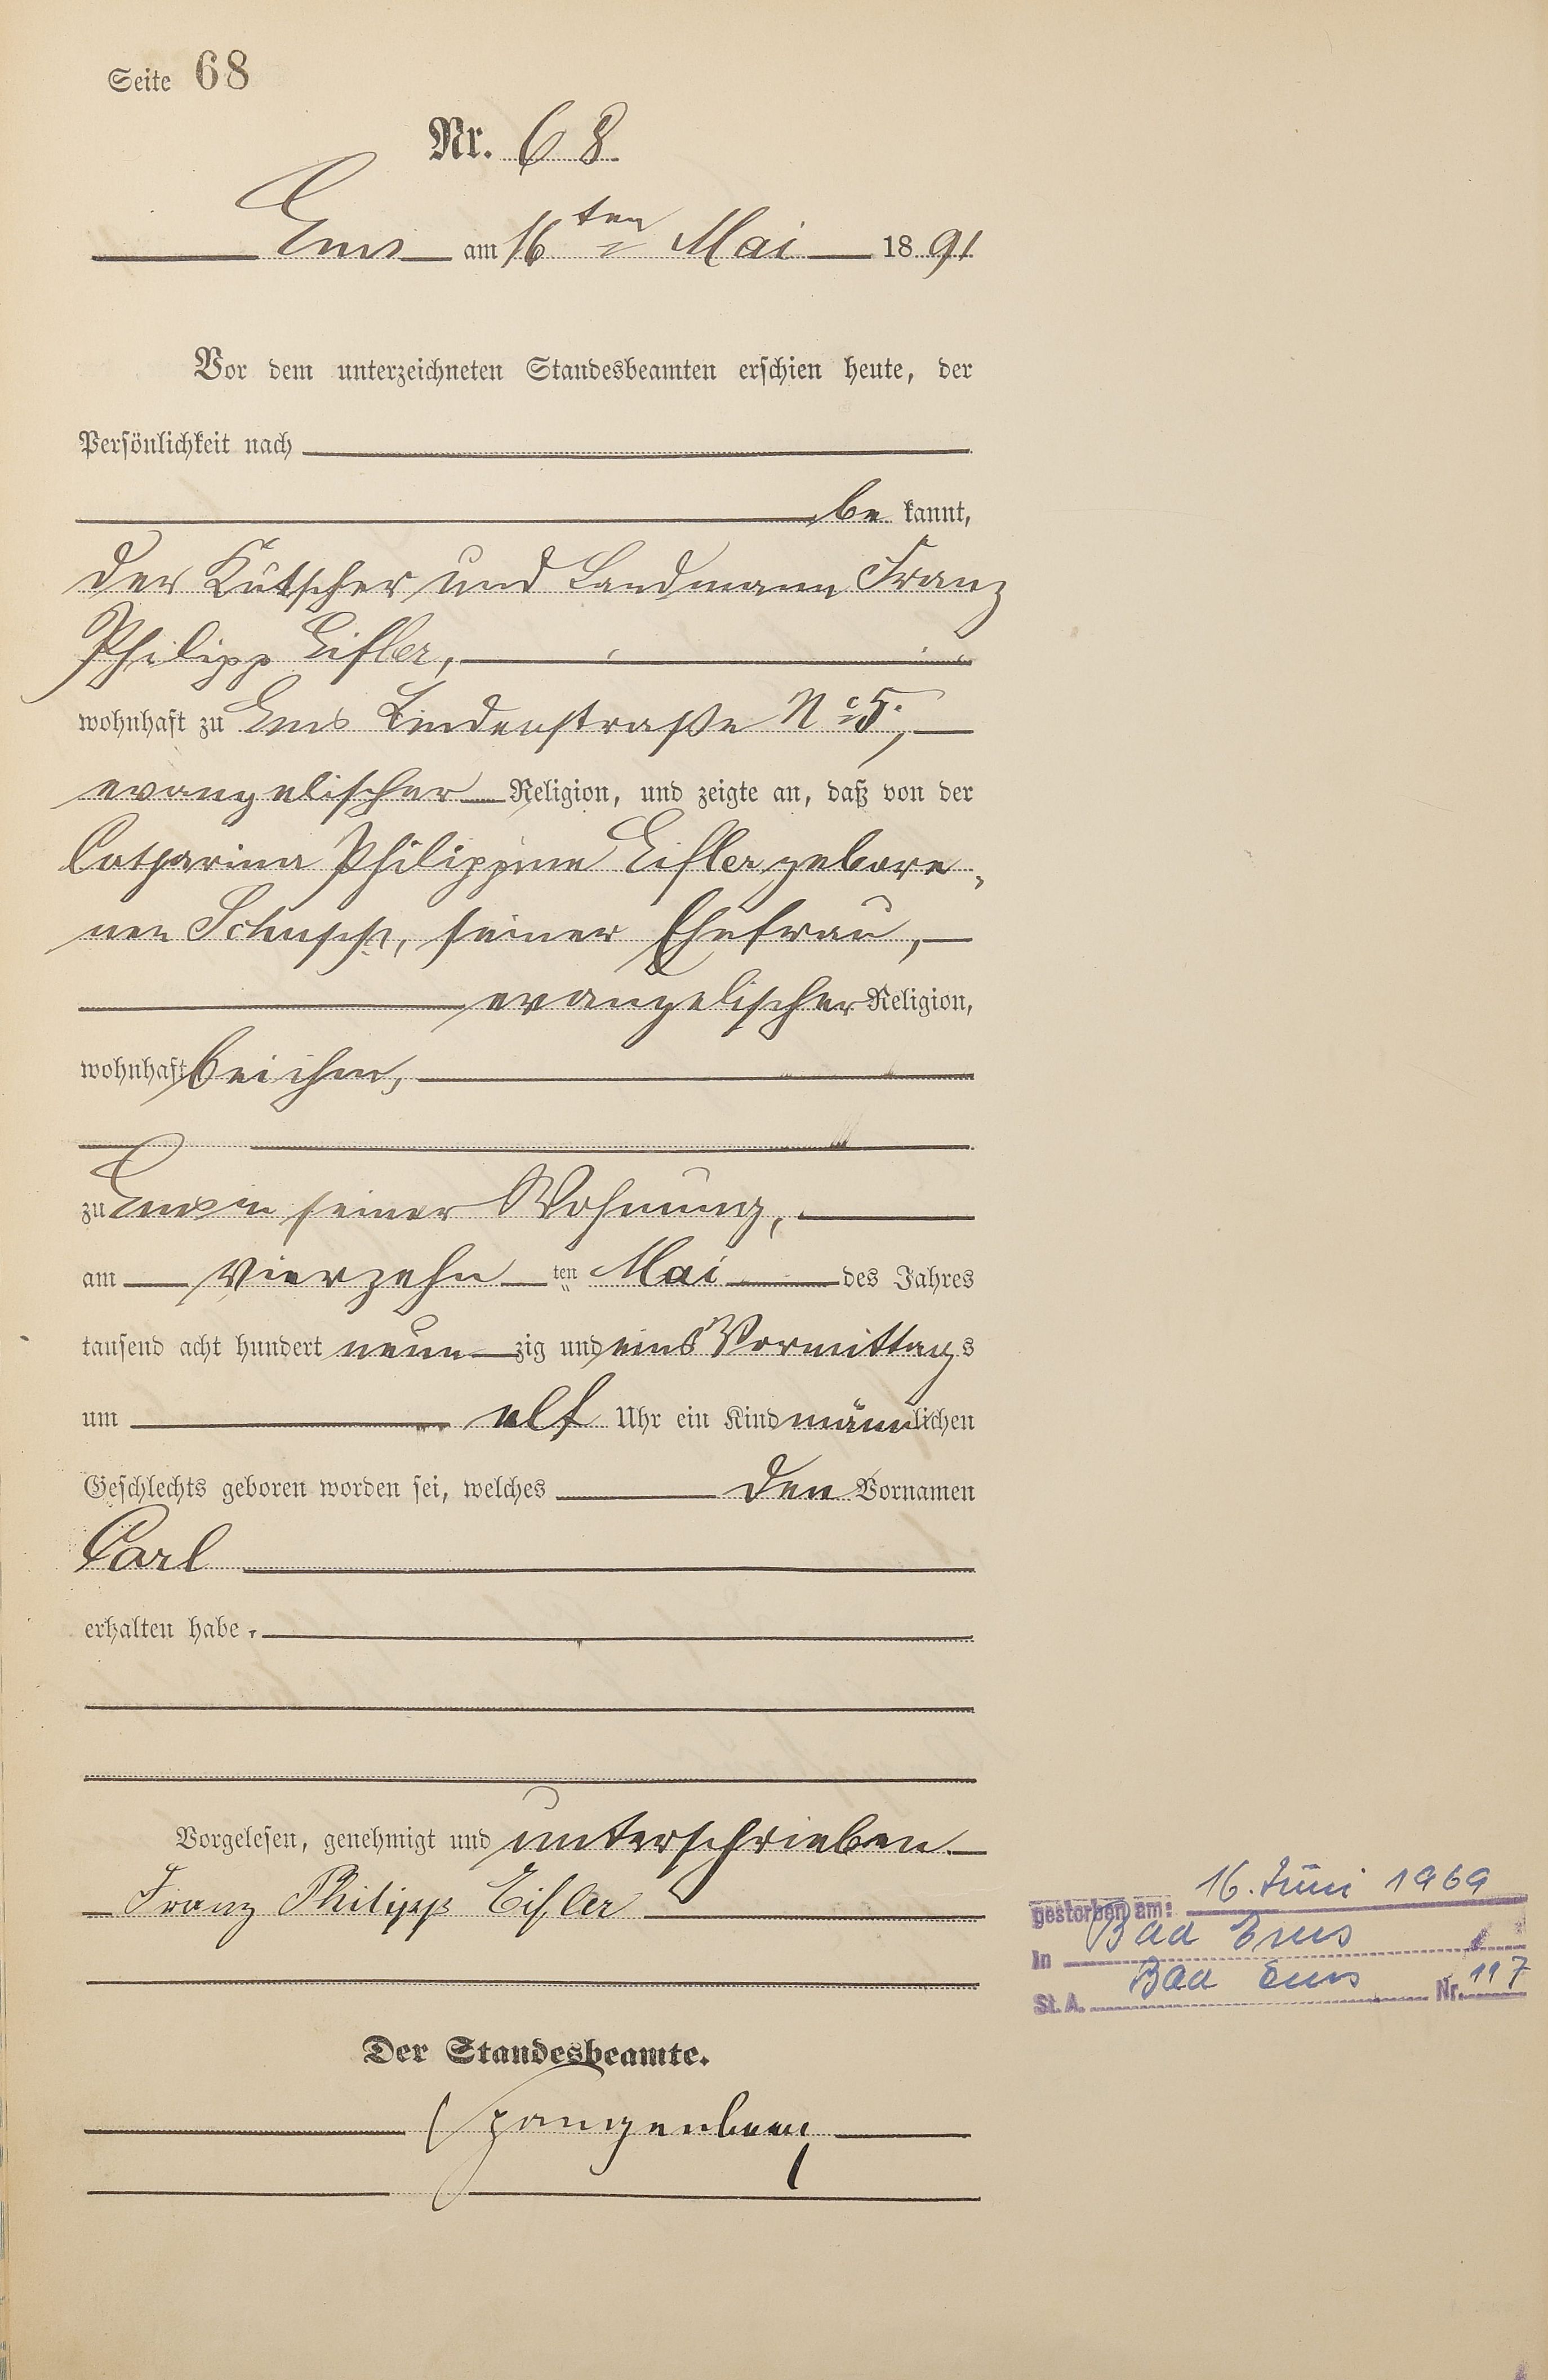 Seite 68
Nr. 68
Ems am 16ten Mai 1891
Vor dem unterzeichneten Standesbeamten erschien heute, der
Persönlichkeit nach
be kannt,
der Kutscher und Landmann Franz
Philipp Eifler,
wohnhaft zu Ems Lindenstraße No 5,
evangelischer Religion, und zeigte an, daß von der
Catharina Philippine Eifler gebore-
nen Schupp, seiner Ehefrau,
evangelischer Religion,
wohnhaft bei ihm,
zu Ems in seiner Wohnung,
am vierzehn ten Mai des Jahres
tausend acht hundert neun zig und eins Vormittags
um elf Uhr ein Kind männlichen
Geschlechts geboren worden sei, welches den Vornamen
Carl
erhalten habe.
Vorgelesen, genehmigt und unterschrieben
Franz Philipp Eifler
Der Standesbeamte.
Spangenberg
gestorben am: 16. Juni 1969
in Bad Ems
St. A. Bad Ems Nr. 117